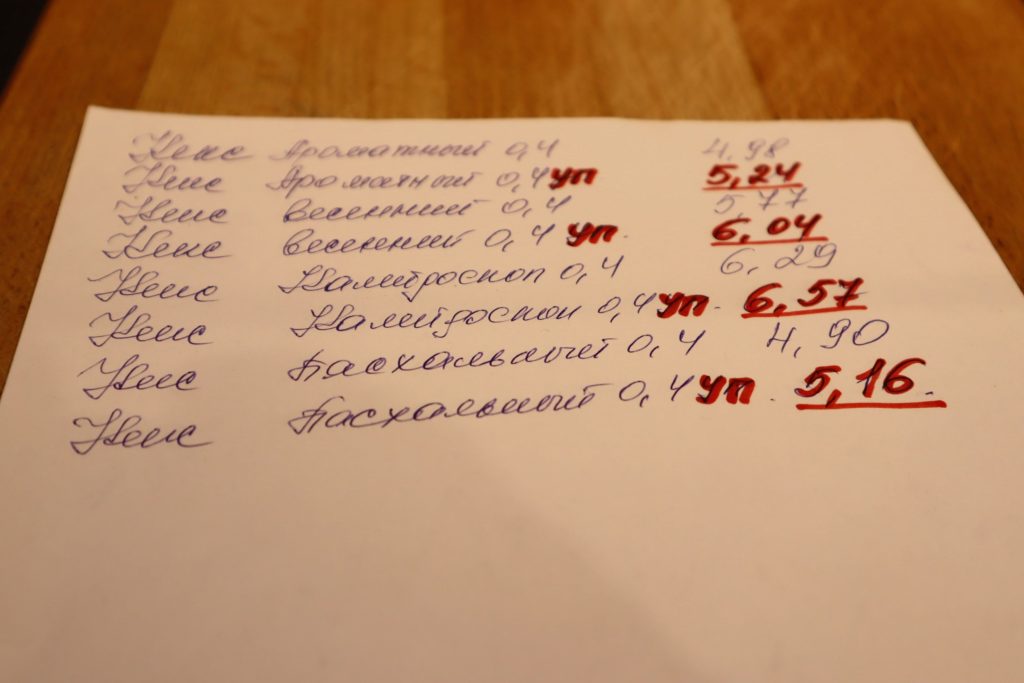 Кекс Ароматный 0,4 4,98
Кекс Ароматный 0,4 уп 5,24
Кекс весенний 0,4 5,77
Кекс весенний 0,4 уп. 6,04
Кекс Калейдоскоп 0,4 6,29
Кекс Калейдоскоп 0,4 уп. 6,57
Кекс Пасхальный 0,4 4,90
Кекс Пасхальный 0,4 уп. 5,16.